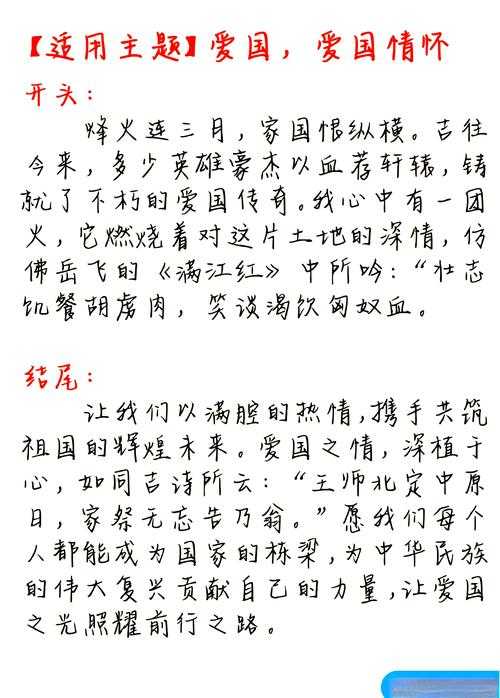 【适用主题】爱国，爱国情怀
开头：
烽火连三月，家国恨纵横。古往
今来，多少英雄豪杰以血荐轩辕，铸
就了不朽的爱国传奇。我心中有一团
火，它燃烧着对这片土地的深情，仿
佛岳飞的《满江红》中所吟：“壮志
饥餐胡虏肉，笑谈渴饮匈奴血。
结尾：
让我们以满腔的热情，携手共筑
祖国的辉煌未来。爱国之情，深植于
心，如同古诗所云：“王师北定中原
日，家祭无忘告乃翁。”愿我们每个
人都能成为国家的栋梁，为中华民族
的伟大复兴贡献自己的力量，让爱国
之光照耀前行之路。